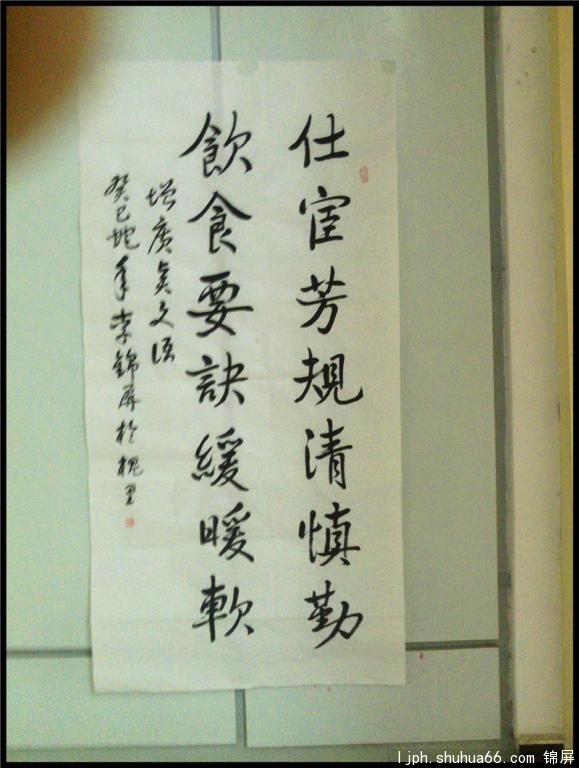 仕宦芳規清慎勤
飲食要訣緩暖軟
增廣賢文語
癸巳蛇年李錦屏於槐里
ljph.shuhua66.com 锦屏